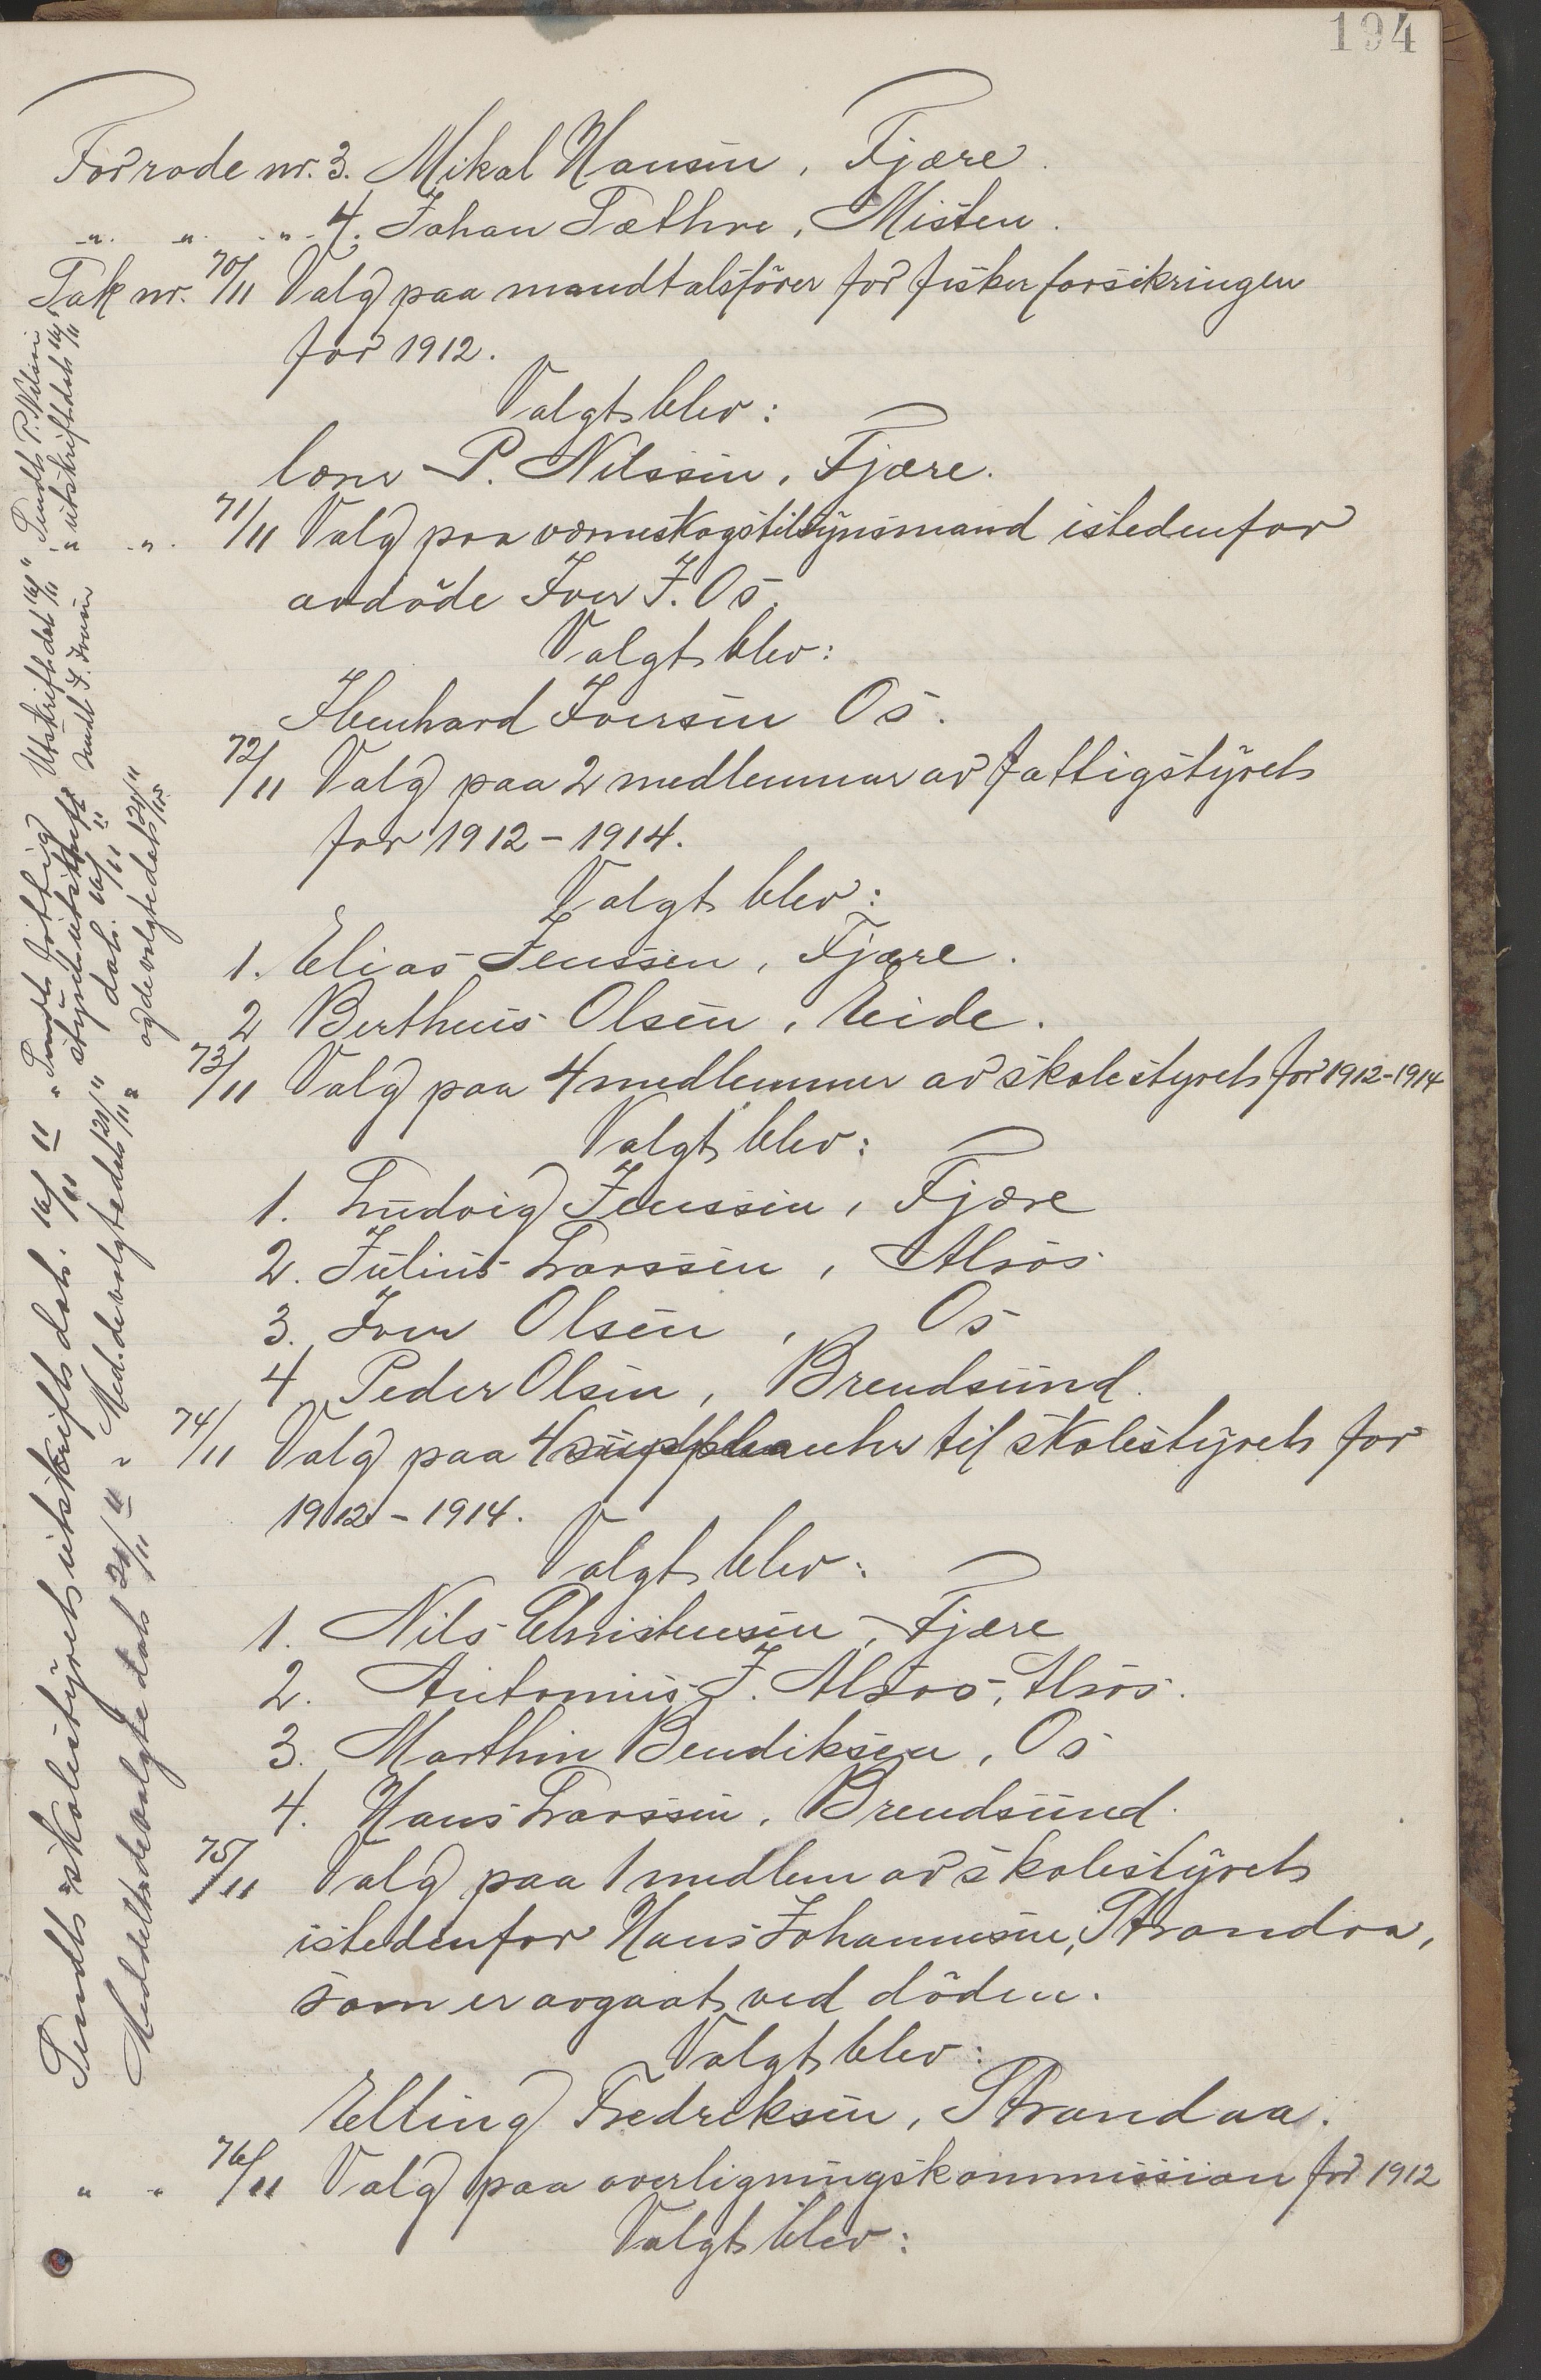 194
For rode nr. 3. Mikal Hansen, Fjære.
" " " 4. Johan Sæthre, Misten.
Sak nr. 70/11 Valg paa mandtalsfører for fiskerforsikringen
for 1912.
Valgt blev:
P. Nilssen, Fjære.
" 71/11 Valg paa verneskogstilsynsmand istedenfor
avdøde Iver J. Os.
Valgt blev:
Ibenhard Iversen Os.
72/11 Valg paa 2 medlemmer av fattigstyret
for 1912-1914.
Valgt blev:
1. Elias Jenssen, Fjære.
2 Berthus Olsen, Eide.
73/11 Valg paa 4 medlemmer av skolestyret for 1912-1914
Valgt blev:
1. Ludvig Jenssen, Fjære
2. Julius Larssen, Alsos
3. Iver Olsen, Os
4 Peder Olsen, Brendsund.
" 74/11 Valg paa 4 suppleanter til skolestyret for
1912-1914.
Valgt blev:
1. Nils Christensen, Fjære
2. Antonius J. Alsos, Alsos.
3. Marthin Bendiksen, Os
4. Hans Larssen, Brendsund.
75/11 Valg paa 1 medlem av skolestyret
istedenfor Hans Johannesen, Strandaa,
som er avgaat ved døden.
Valgt blev:
Elling Fredriksen, Strandaa.
" " 76/11 Valg paa overligningskommission for 1912
Valgt blev:
Sendt skolestyret utskrift dat. 16/11 11
Meddelt de valgte dat 20/11 11
" Sendt fattig
styret utskrift
dat. 16/11 11
" Med. de valgte dat 20/11 11
Utskrift dat 16/11 11 Sendt P. Nilssen
" utskrift dat 16/11 11
sendt I. Iversen
" og de valgte dat 20/11 11